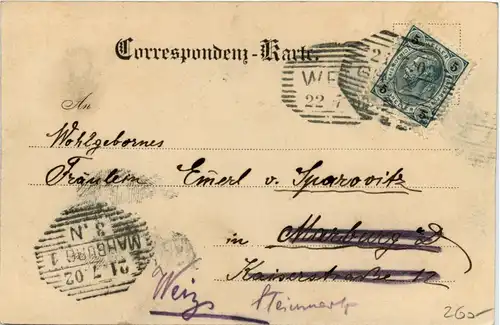 Correspondenz-Karte.
5 5
WE
22 7
An
Wohlgebornes
Fräulein Emerl v. Sparovitz
in Marburg a/D
Kaiserstraße 12
21.7.02
MARBURG 1
3. N
Weiz Steiermark
260